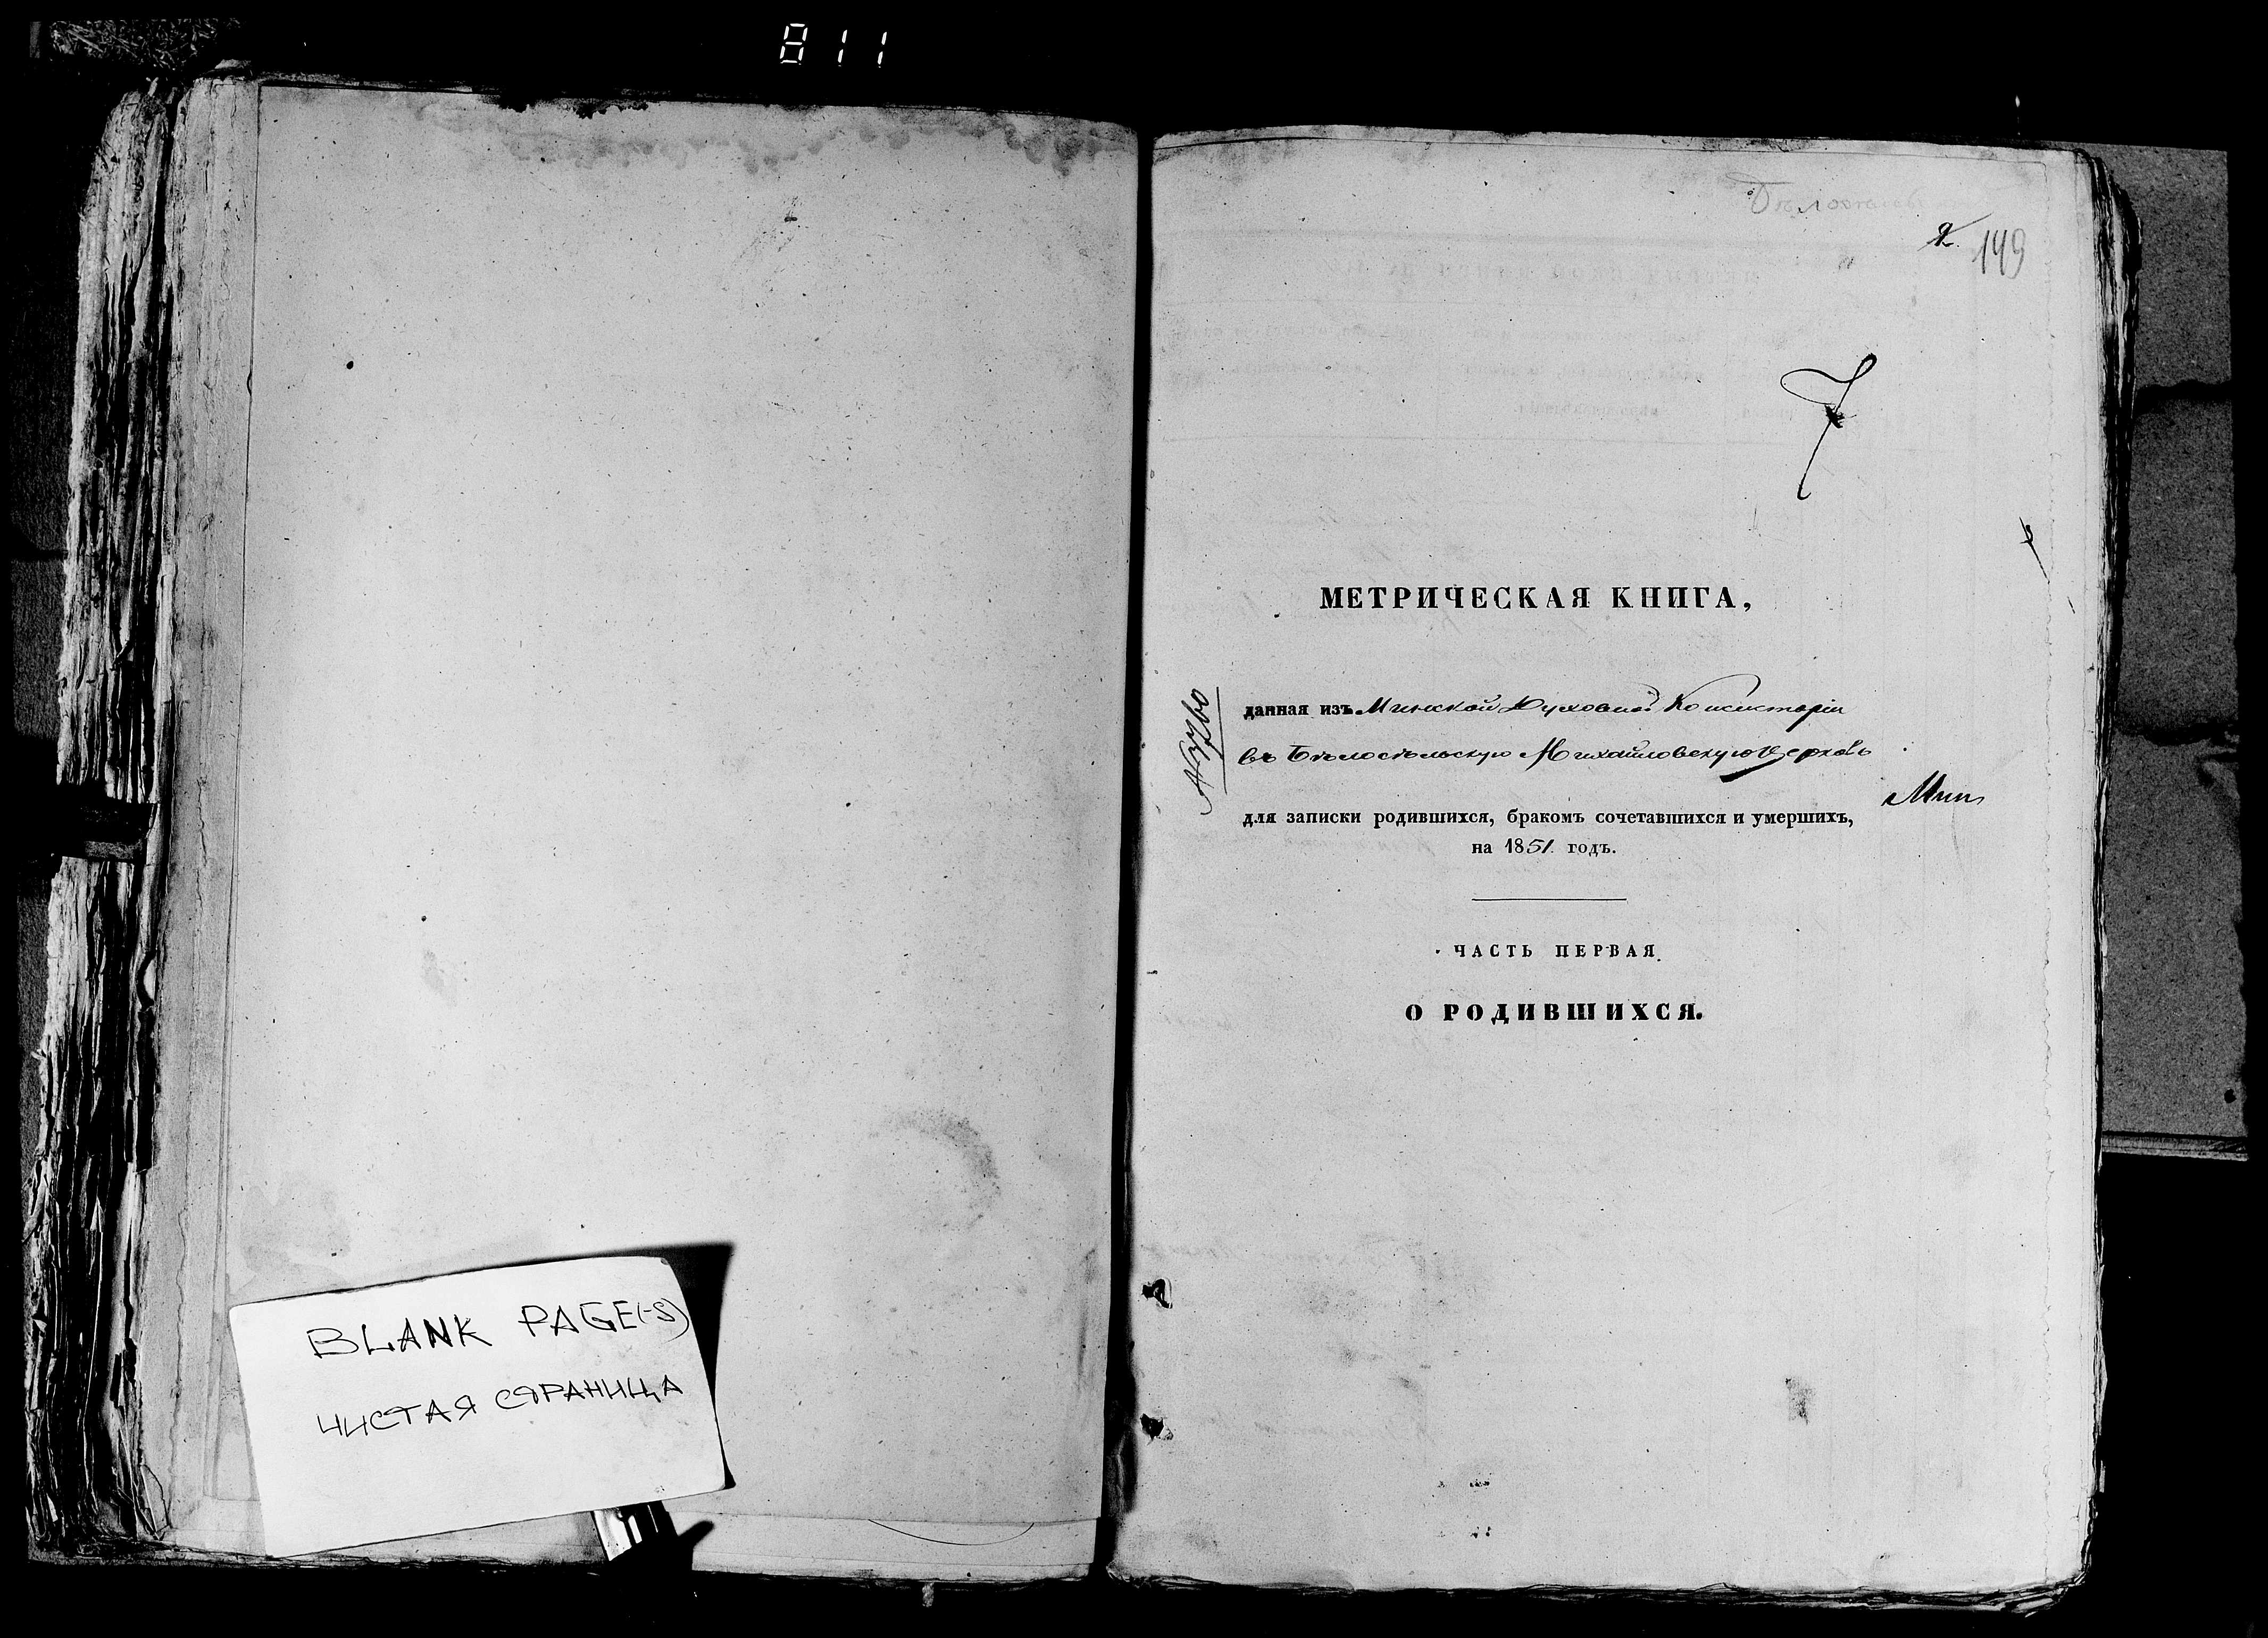 811
BLANK PAGE(-S)
ЧИСТАЯ СТРАНИЦА
2. 149
7
МЕТРИЧЕСКАЯ КНИГА,
данная изъ Минской Духовной Консисторіи
въ Бѣлосельскую Михайловскую Церковь
для записки родившихся, бракомъ сочетавшихся и умершихъ,
на 1851 годъ.
ЧАСТЬ ПЕРВАЯ.
О РОДИВШИХСЯ.